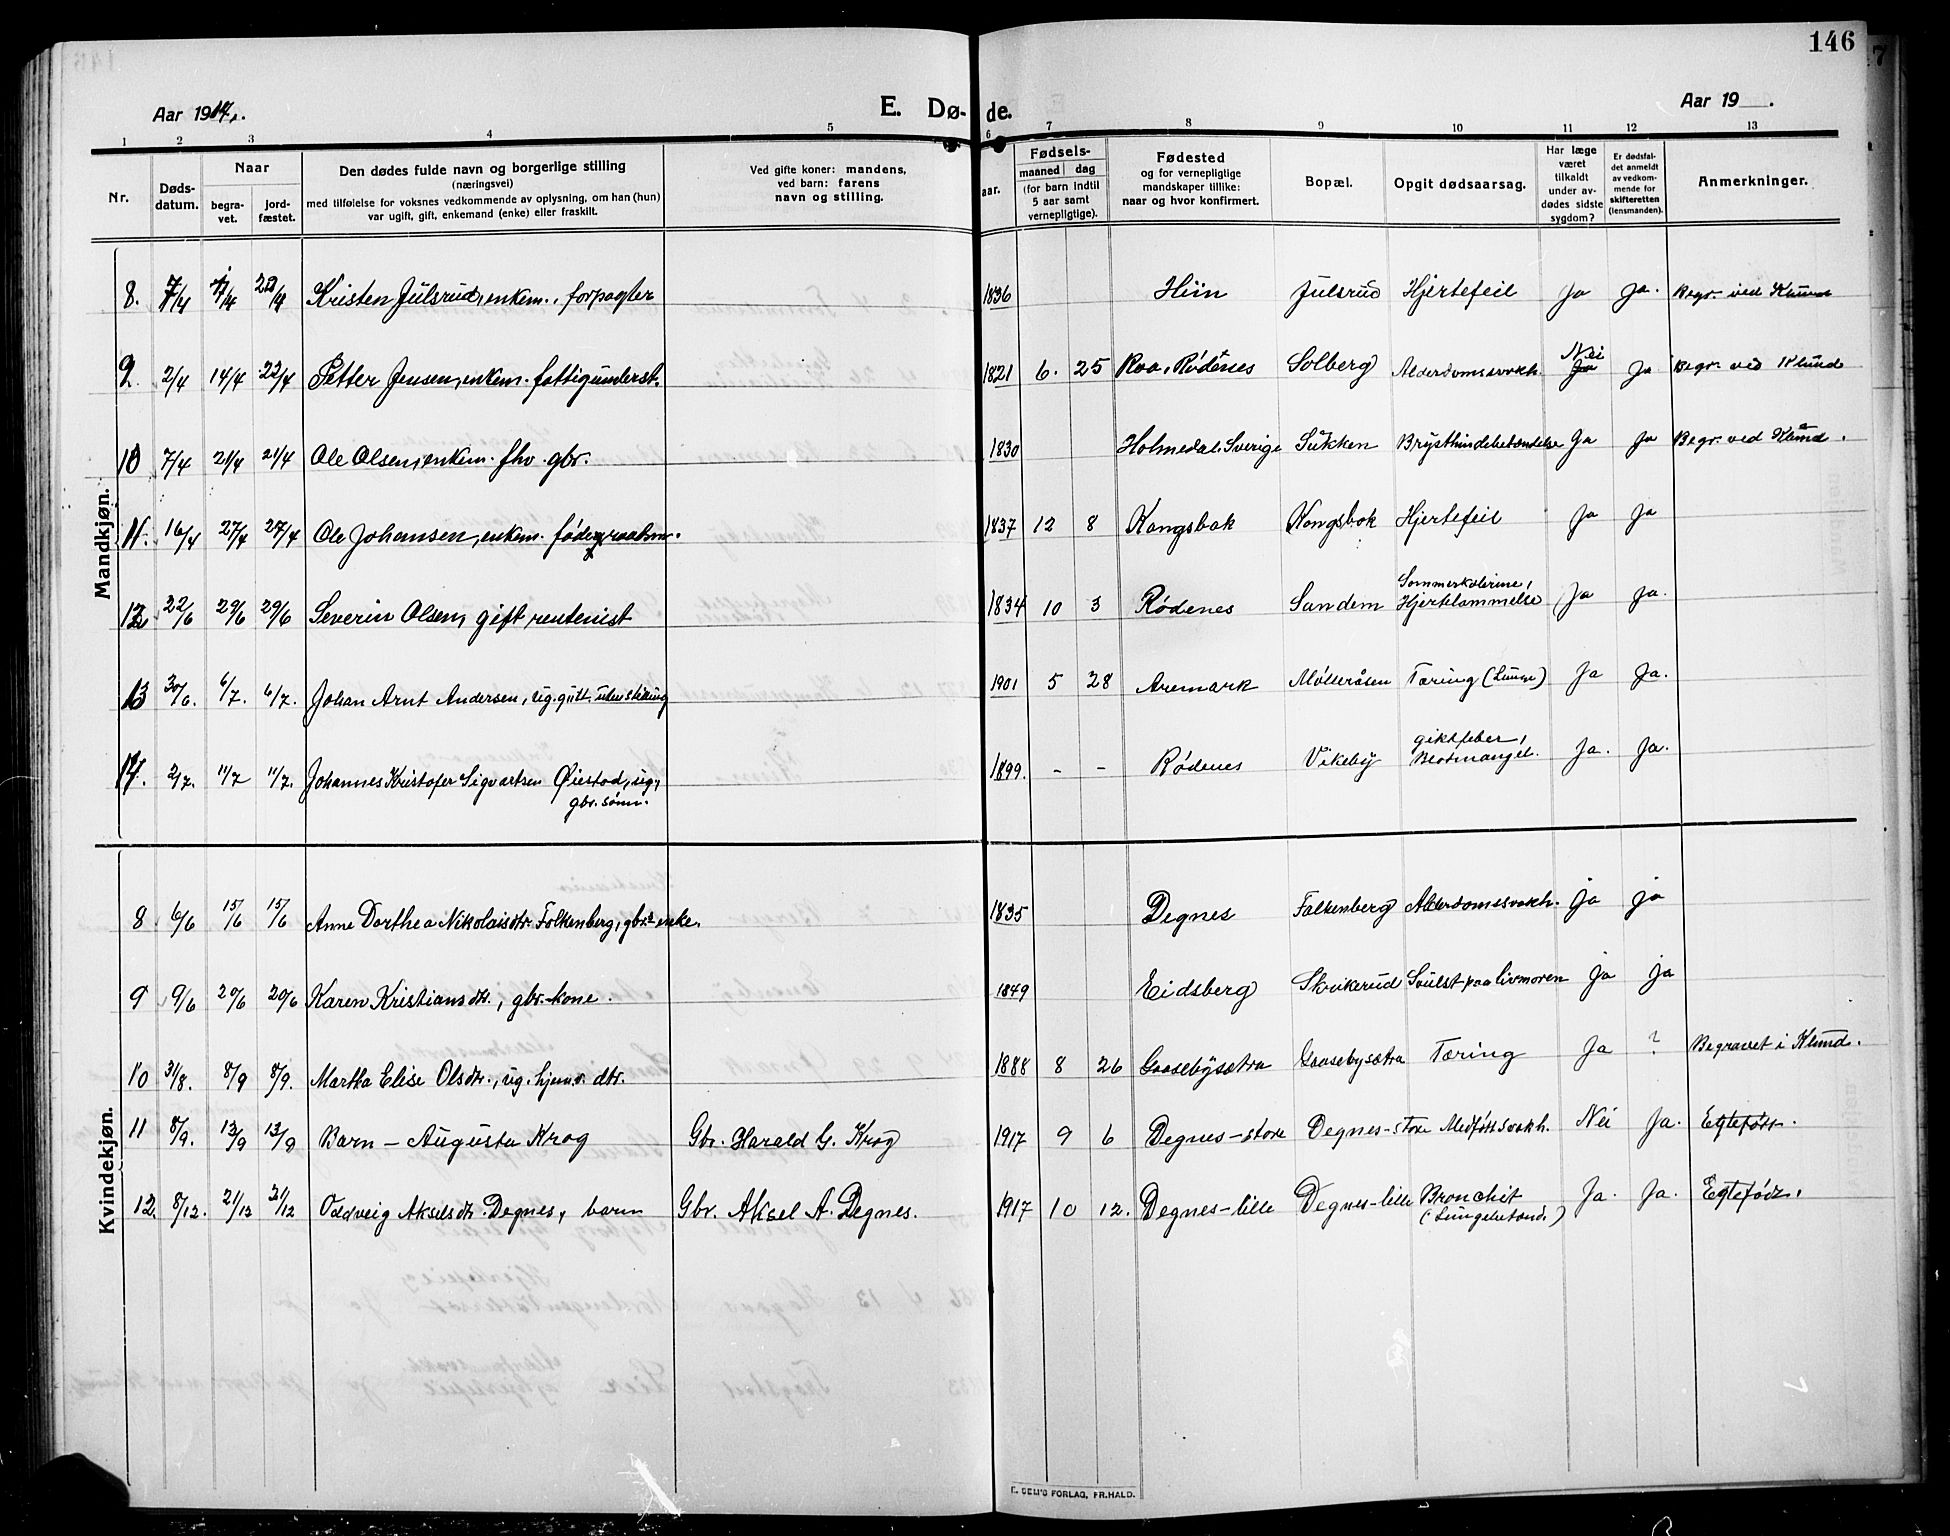 146
Aar 1917.
E. Dø- de.
Aar 19 .
1 2 3 4 5 6 7 8 9 10 11 12 13
Nr.
Døds-
datum.
Naar
begra-
vet.
jord-
fæstet.
Den dødes fulde navn og borgerlige stilling
(næringsvei)
med tilføielse for voksnes vedkommende av oplysning, om han (hun)
var ugift, gift, enkemand (enke) eller fraskilt.
Ved gifte koner: mandens,
ved barn: farens
navn og stilling.
aar.
Fødsels-
maaned dag
(for barn indtil
5 aar samt
vernepligtige).
Fødested
og for vernepligtige
mandskaper tillike:
naar og hvor konfirmert.
Bopæl.
Opgit dødsaarsag.
Har læge
været
tilkaldt
under av-
dødes sidste
sygdom?
Er dødsfal-
det anmeldt
av vedkom-
mende for
skifteretten
(lensmanden).
Anmerkninger.
Mandkjøn.
8. 7/4 Kristen Julsrud, enkem., forpagter 1836 Hiin Julsrud Hjertefeil Ja Ja. Begr. ved Klund
9. 2/4 14/4 22/4 Petter Jensen, enkem. fattigunderst. 1821 6. 25 Roa, Rødenes Solberg Alderdomssvakh. Nei Ja Ja Begr. ved Klund
10 7/4 21/4 21/4 Ole Olsen, enkem. fhv. gbr. 1830 Holmedal, Sverige Sukken Brysthindebetændelse Ja Ja Begr. ved Klund.
11. 16/4 27/4 27/4 Ole Johansen, enkem. føderaadsm. 1837 12 8 Kongsbok Kongsbok Hjertefeil Ja Ja
12 22/6 29/6 29/6 Severin Olsen, gift, rentenist 1834 10 3 Rødenes Sandem Sommerkolerine,
Hjertelammelse Ja Ja.
13 30/6. 6/7. 6/7. Johan Arnt Andersen, ug. gutt. uten stilling 1901 5 28 Aremark Mølleråsen Tæring (Lunge) Ja Ja.
14. 2/7. 11/7 11/7. Johannes Kristofer Sigvartsen Øiestad, ug,
gbr. sønn. 1899. - - Rødenes Vikeby giktfeber,
Blotmangel. Ja. Ja.
Kvindekjøn.
8 6/6 15/6 15/6 Anne Dorthea Nikolaisdtr. Falkenberg, gbrs enke. 1835 Degnes Falkenberg Alderdomssvakh. Ja Ja
9 9/6 20/6 20/6 Karen Kristiansdtr., gbr. kone. 1849 Eidsberg Skikerud Svulst paa livmoren Ja Ja
10 31/8. 8/9 8/9. Martha Elise Olsdtr., ug. hjemv. dtr. 1888 8 26 Gaasebysætra Gaasebysætra Tæring Ja ? Begravet i Klund.
11 8/9. 13/9 13/9 Barn – Augusta Krog Gbr. Harald G. Krog 1917 9 6 Degnes-store Degnes-store Medføttsvakh. Nei Ja. Egtefødt.
12. 8/12. 21/12 21/12 Oddveig Akselsdtr. Degnes, barn Gbr. Aksel A. Degnes. 1917 10 12. Degnes-lille Degnes-lille Bronchit
(Lungebetænd.) Ja. Ja. Egtefødt.
FORLAG, FR.HALD.